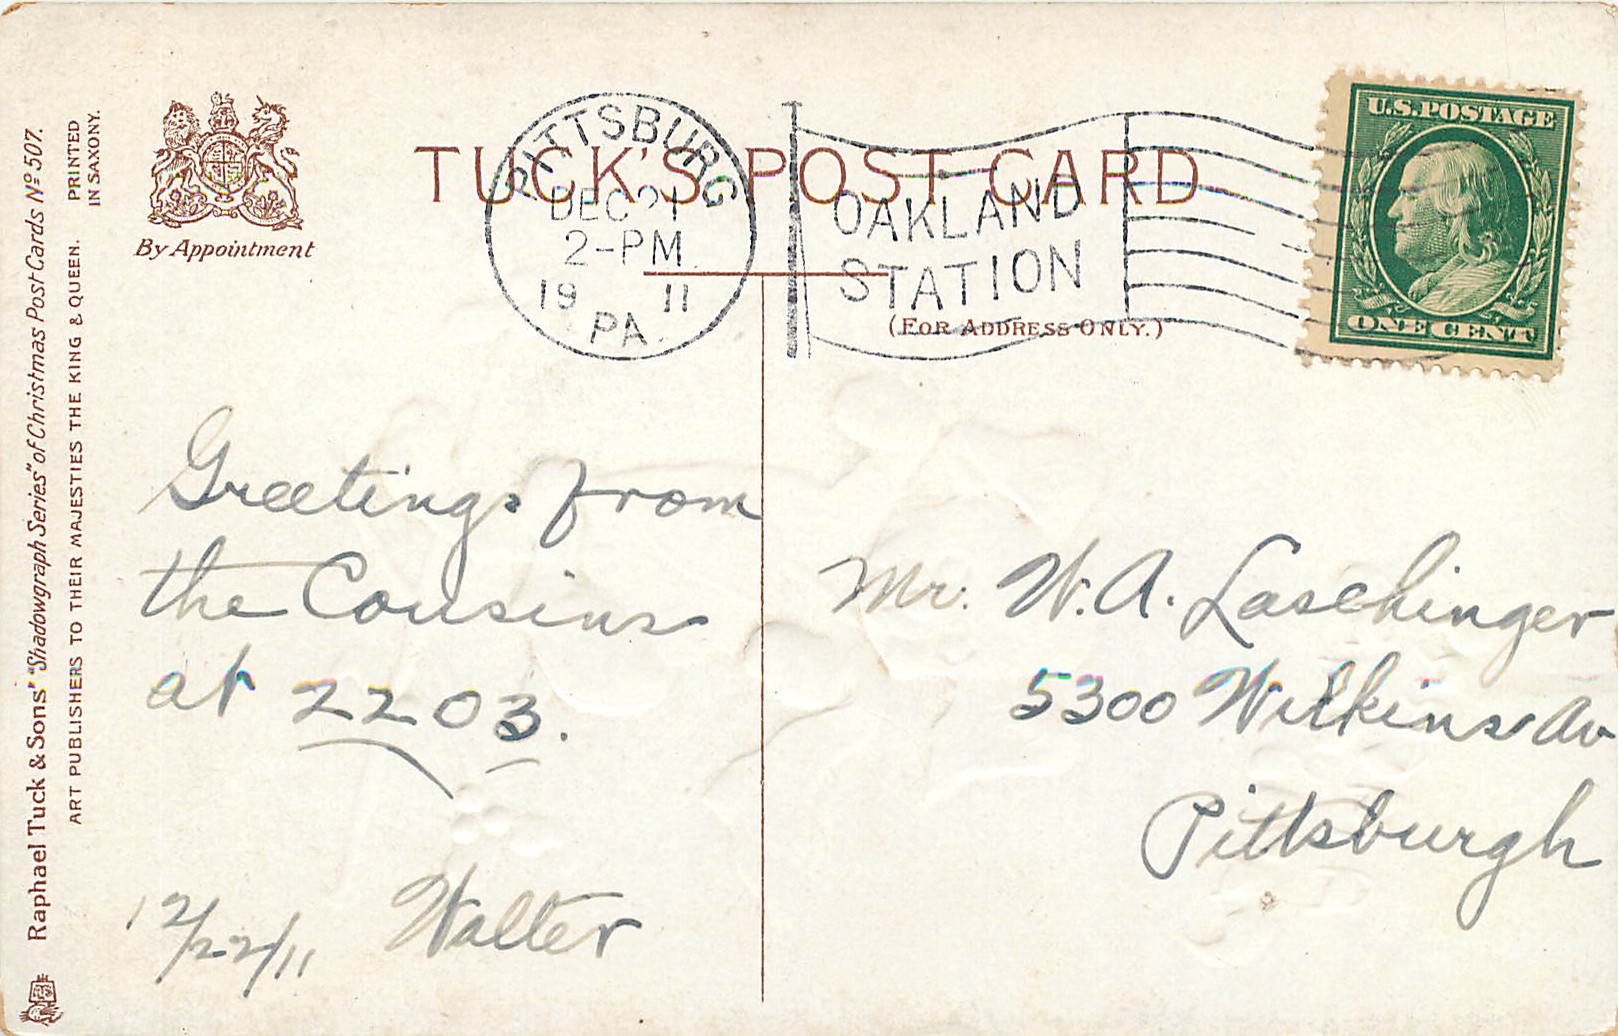 Raphael Tuck & Sons' "Shadowgraph Series" of Christmas Post Cards Nº 507.
ART PUBLISHERS TO THEIR MAJESTIES THE KING & QUEEN.
PRINTED
IN SAXONY.
By Appointment
TUCK'S POST CARD
(FOR ADDRESS ONLY.)
PITTSBURG
DEC 21
2-PM
19 11
PA.
OAKLAND
STATION
U.S. POSTAGE
ONE CENT
Greetings from
the Cousins
at 2203.
12/22/11 Walter
Mr. W. A. Laschinger
5300 Wilkins Av
Pittsburgh